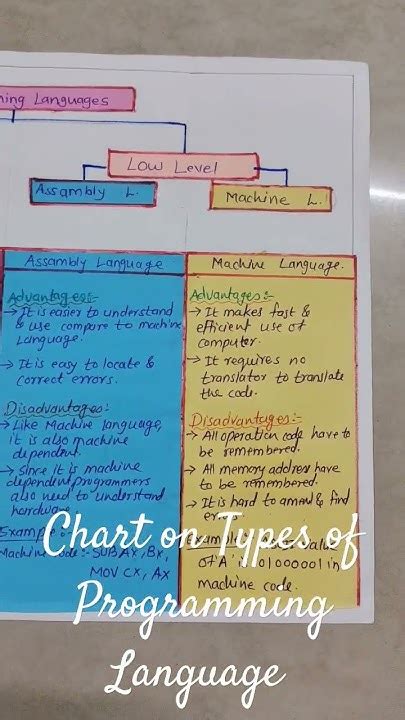 ning Languages
Low Level
Assambly L.
Machine L.
Assembly Language
Advantages:-
→ It is easier to understand
& use compare to machine
Language.
→ It is easy to locate &
correct errors.
Disadvantages:
→ Like Machine Language,
it is also machine
dependent.
→ Since it is machine
dependent programmers
also need to understand
hardware.
Example:-
Machine code:- SUB AX, BX,
MOV CX, AX
Machine Language.
Advantages:-
→ It makes fast &
efficient use of
computer.
→ It requires no
translator to translate
the code.
Disadvantages:-
→ All operation code have to
be remembered.
→ All memory address have
to be remembered.
→ It is hard to amend & find
Example:
value
of 'A' is 01000001 in
machine code.
Chart on Types of
Programming
Language